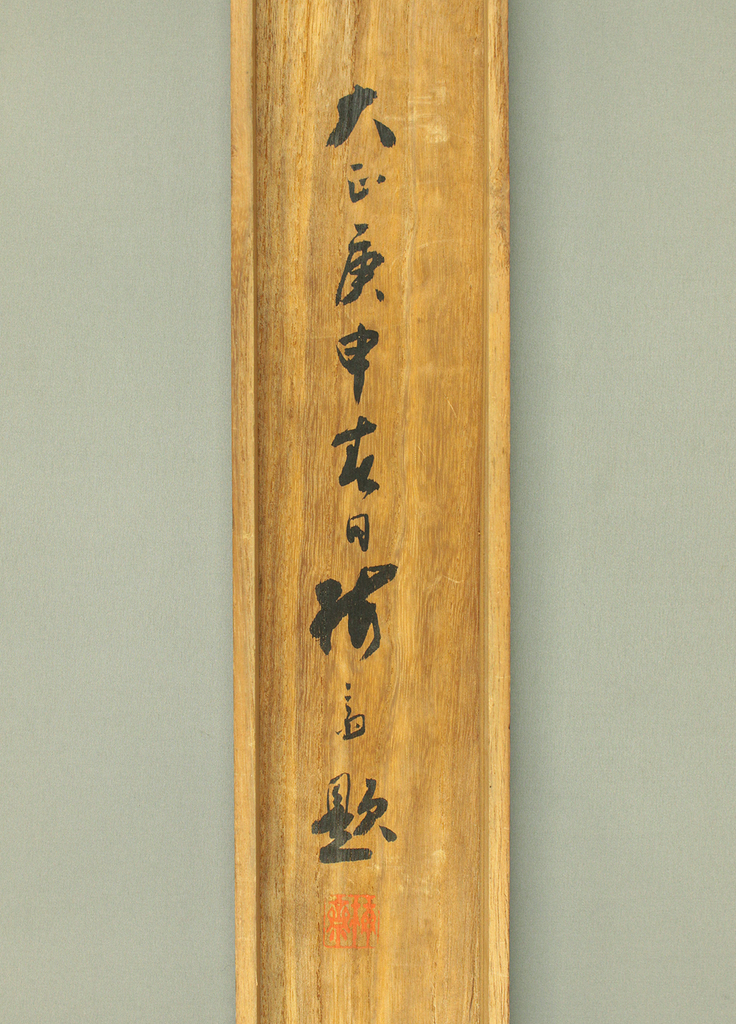 大正庚申春日梅翁題